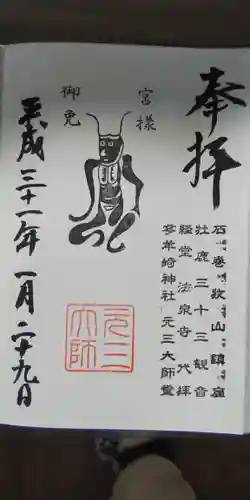 奉拝
石巻牧山鎮座
牡鹿三十三観音
経堂 法泉寺 代拝
零羊崎神社 元三大師堂
宮様
御免
元三大師
平成三十一年一月二十九日